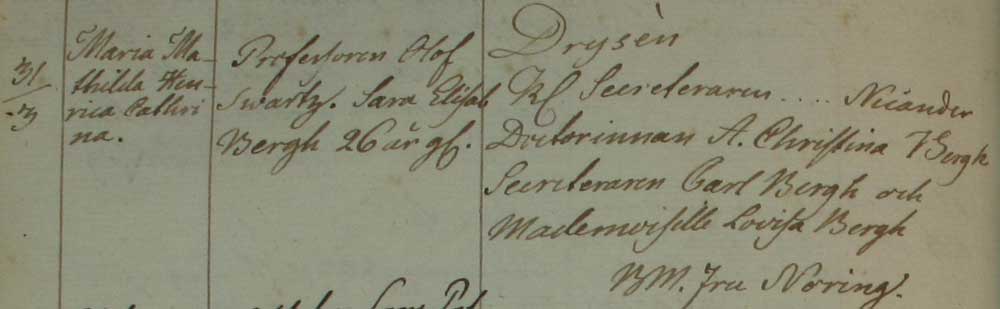 31/3
Maria Ma-
thilda Hen-
rica Cathri
na.
Professoren Olof
Swartz. Sara Elisab
Bergh 26 år gl.
Drysèn
Kl Secreteraren .... Nicander
Doctorinnan A. Christina Bergh
Secreteraren Carl Bergh och
Mademoiselle Lovisa Bergh
BM. Fru Noring.